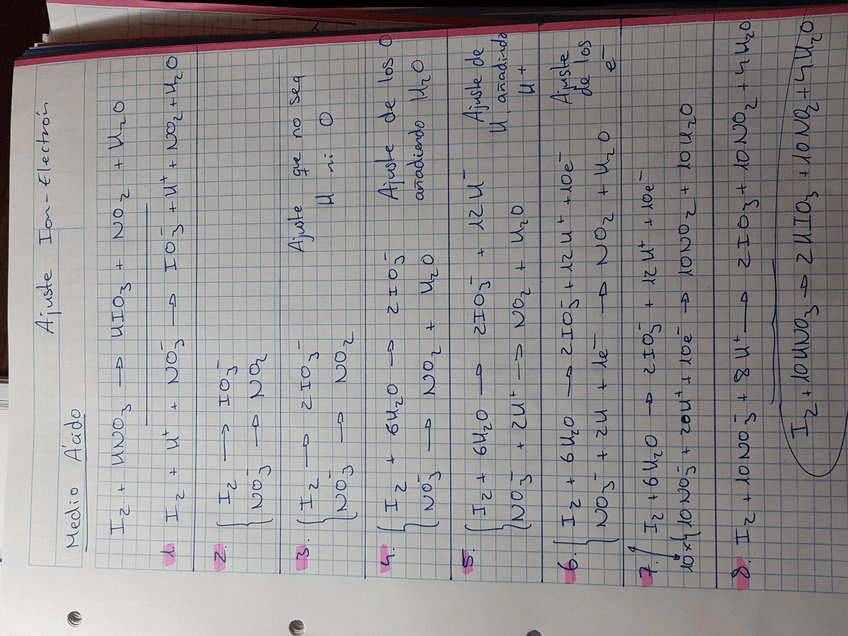 Ajuste Ion-Electrón
Medio Ácido
I₂ + HNO₃ → HIO₃ + NO₂ + H₂O
1. I₂ + H⁺ + NO₃⁻ → IO₃⁻ + H⁺ + NO₂ + H₂O
2. { I₂ → IO₃⁻
NO₃⁻ → NO₂
3. { I₂ → 2IO₃⁻ Ajuste que no sea
NO₃⁻ → NO₂ H ni O
4. { I₂ + 6H₂O → 2IO₃⁻ Ajuste de los O
NO₃⁻ → NO₂ + H₂O añadiendo H₂O
5. { I₂ + 6H₂O → 2IO₃⁻ + 12H⁻ Ajuste de
NO₃⁻ + 2H⁺ → NO₂ + H₂O H añadiendo
H+
6. { I₂ + 6H₂O → 2IO₃⁻ + 12H⁺ + 10e⁻ Ajuste
NO₃⁻ + 2H + 1e⁻ → NO₂ + H₂O de los
e⁻
7. { I₂ + 6H₂O → 2IO₃⁻ + 12H⁺ + 10e⁻
10x { 10NO₃⁻ + 20H⁺ + 10e⁻ → 10NO₂ + 10H₂O
8. I₂ + 10NO₃⁻ + 8H⁺ → 2IO₃ + 10NO₂ + 4H₂O
I₂ + 10HNO₃ → 2HIO₃ + 10NO₂ + 4H₂O